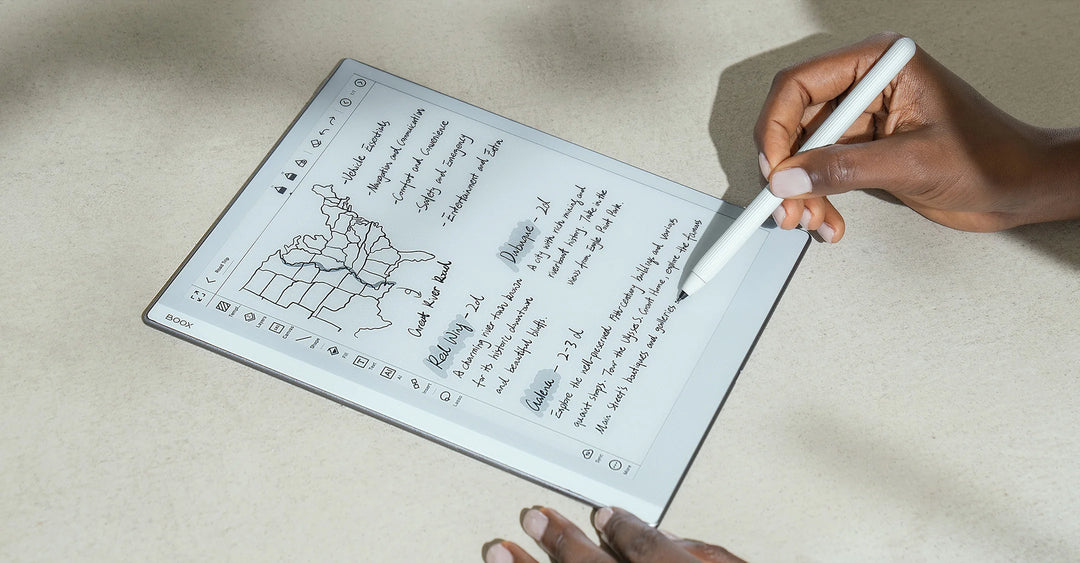 BOOX
Road Trip
Layers
Shape
Fill
Text
AI
Insert
Lasso
Sync
More
1/1
- Vehicle Essentials
- Navigation and Communication
- Comfort and Convenience
- Safety and Emergency
- Entertainment and Extra
Great River Road
Red Wing - 2d
A charming river town known
for its historic downtown
and beautiful bluffs.
Dubuque - 2d
A city with rich mining and
riverboat history. Take in the
views from Eagle Point Park.
Galena - 2-3 d
Explore the well-preserved 19th-century buildings and various
quaint shops. Tour the Ulysses S. Grant Home, explore the famous
Main Street's boutiques and galleries